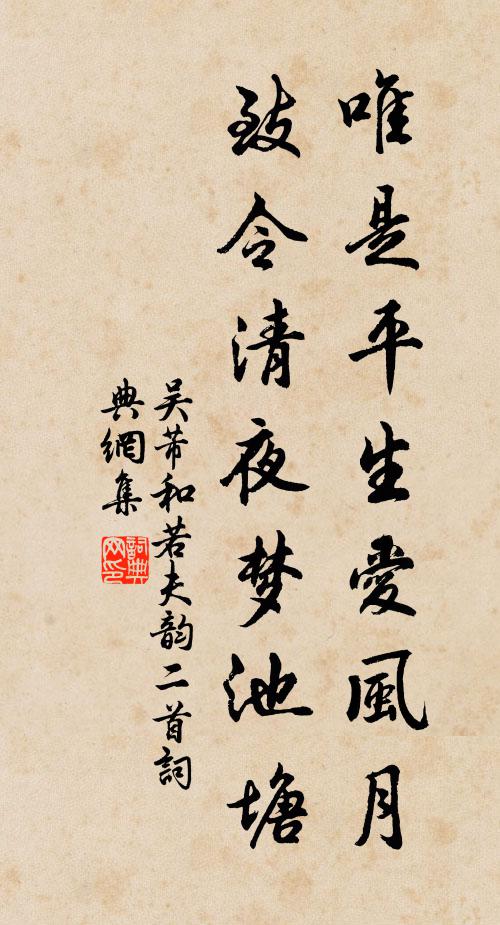 唯是平生愛風月
致令清夜梦池塘
吴芾和若夫韵二首詞
典網集
詞典
网印